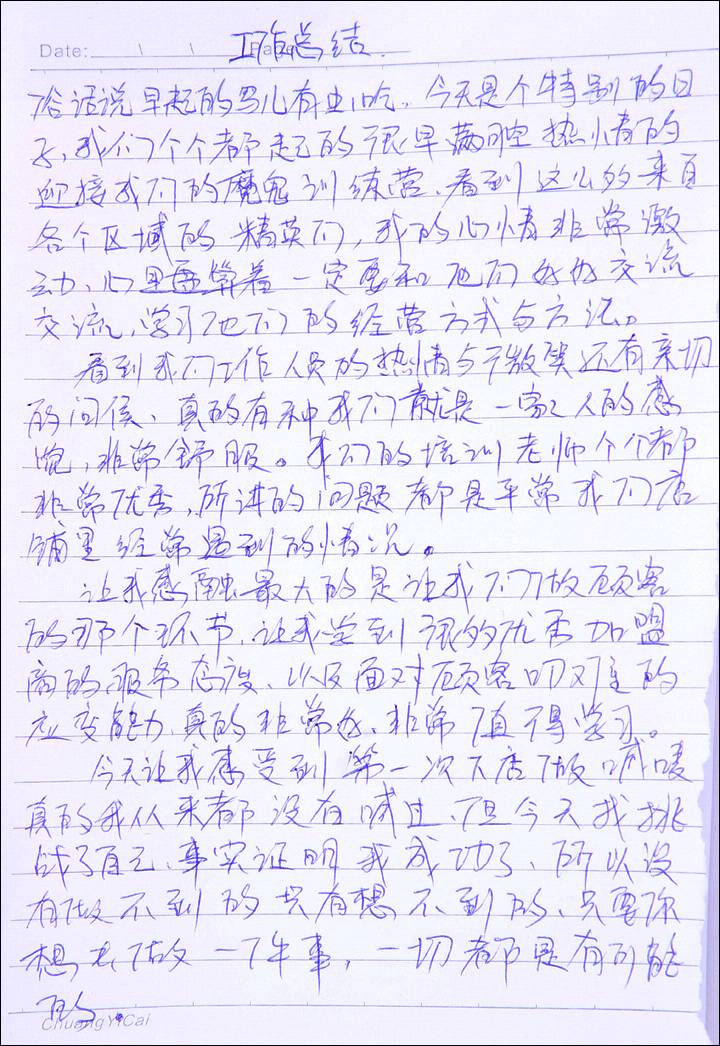 Date:
工作总结.
俗话说早起的鸟儿有虫吃、今天是个特别的日
子,我们个个都起的很早满腔热情的
迎接我们的魔鬼训练营、看到这么多来自
各个区域的精英们,我的心情非常激
动、心里盘算着一定要和他们好好交流
交流,学习他们的经营方式与方法。
看到我们工作人员的热情与微笑还有亲切
的问侯、真的有种我们就是一家人的感
觉,非常舒服。我们的培训老师个个都
非常优秀,所讲的问题都是平常我们店
铺里经常遇到的情况。
让我感触最大的是让我们做顾客
的那个环节,让我学到很多优秀加盟
商的服务态度、以及面对顾客叨难的
应变能力、真的非常好、非常值得学习。
今天让我感受到第一次下店做喊唛
真的我从来都没有喊过、但今天我挑
战了自己、事实证明我成功了、所以没
有做不到的只有想不到的、只要你
想去做一件事,一切都是有可能
的.
ChuangYiCai